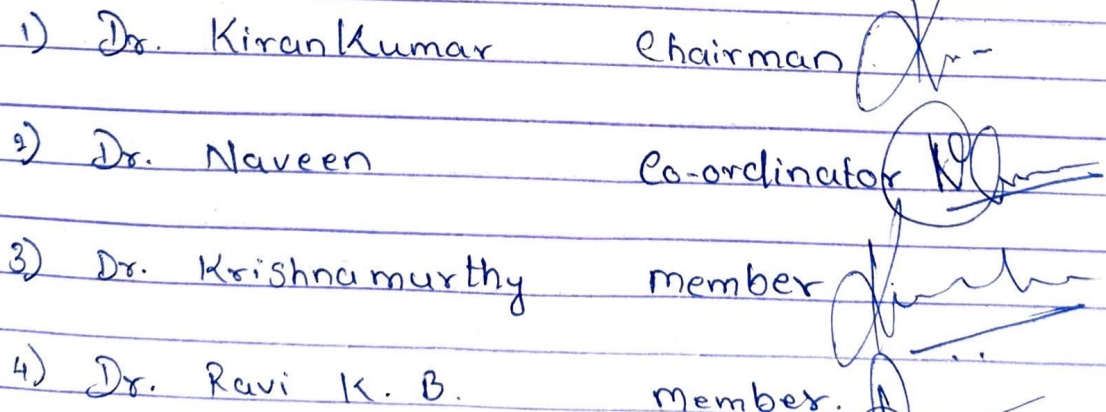 1) Dr. Kiran Kumar Chairman
2) Dr. Naveen Co-ordinator
3) Dr. Krishnamurthy member
4) Dr. Ravi K. B. Member.